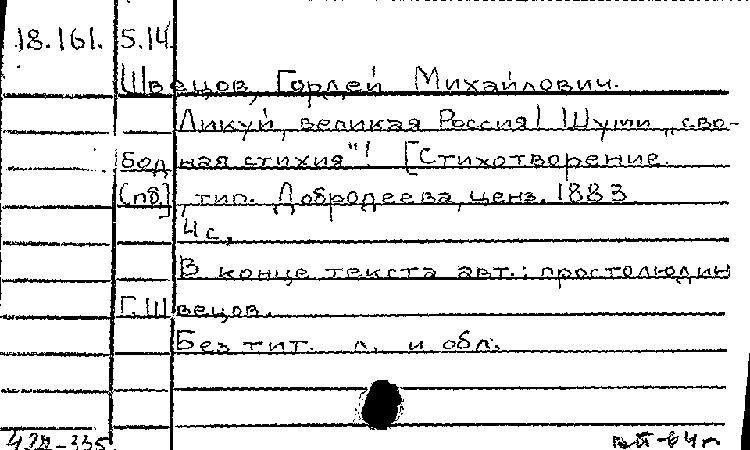 18.161. 5.14
Швецов, Гордей Михайлович.
Ликуй, великая Россия! Шуми „сво-
бодная стихия"! [Стихотворение.
[Спб], тип. Добродеева, ценз. 1883
4 с.
В конце текста авт.: простолюдин
Г. Швецов.
Без тит. л. и обл.